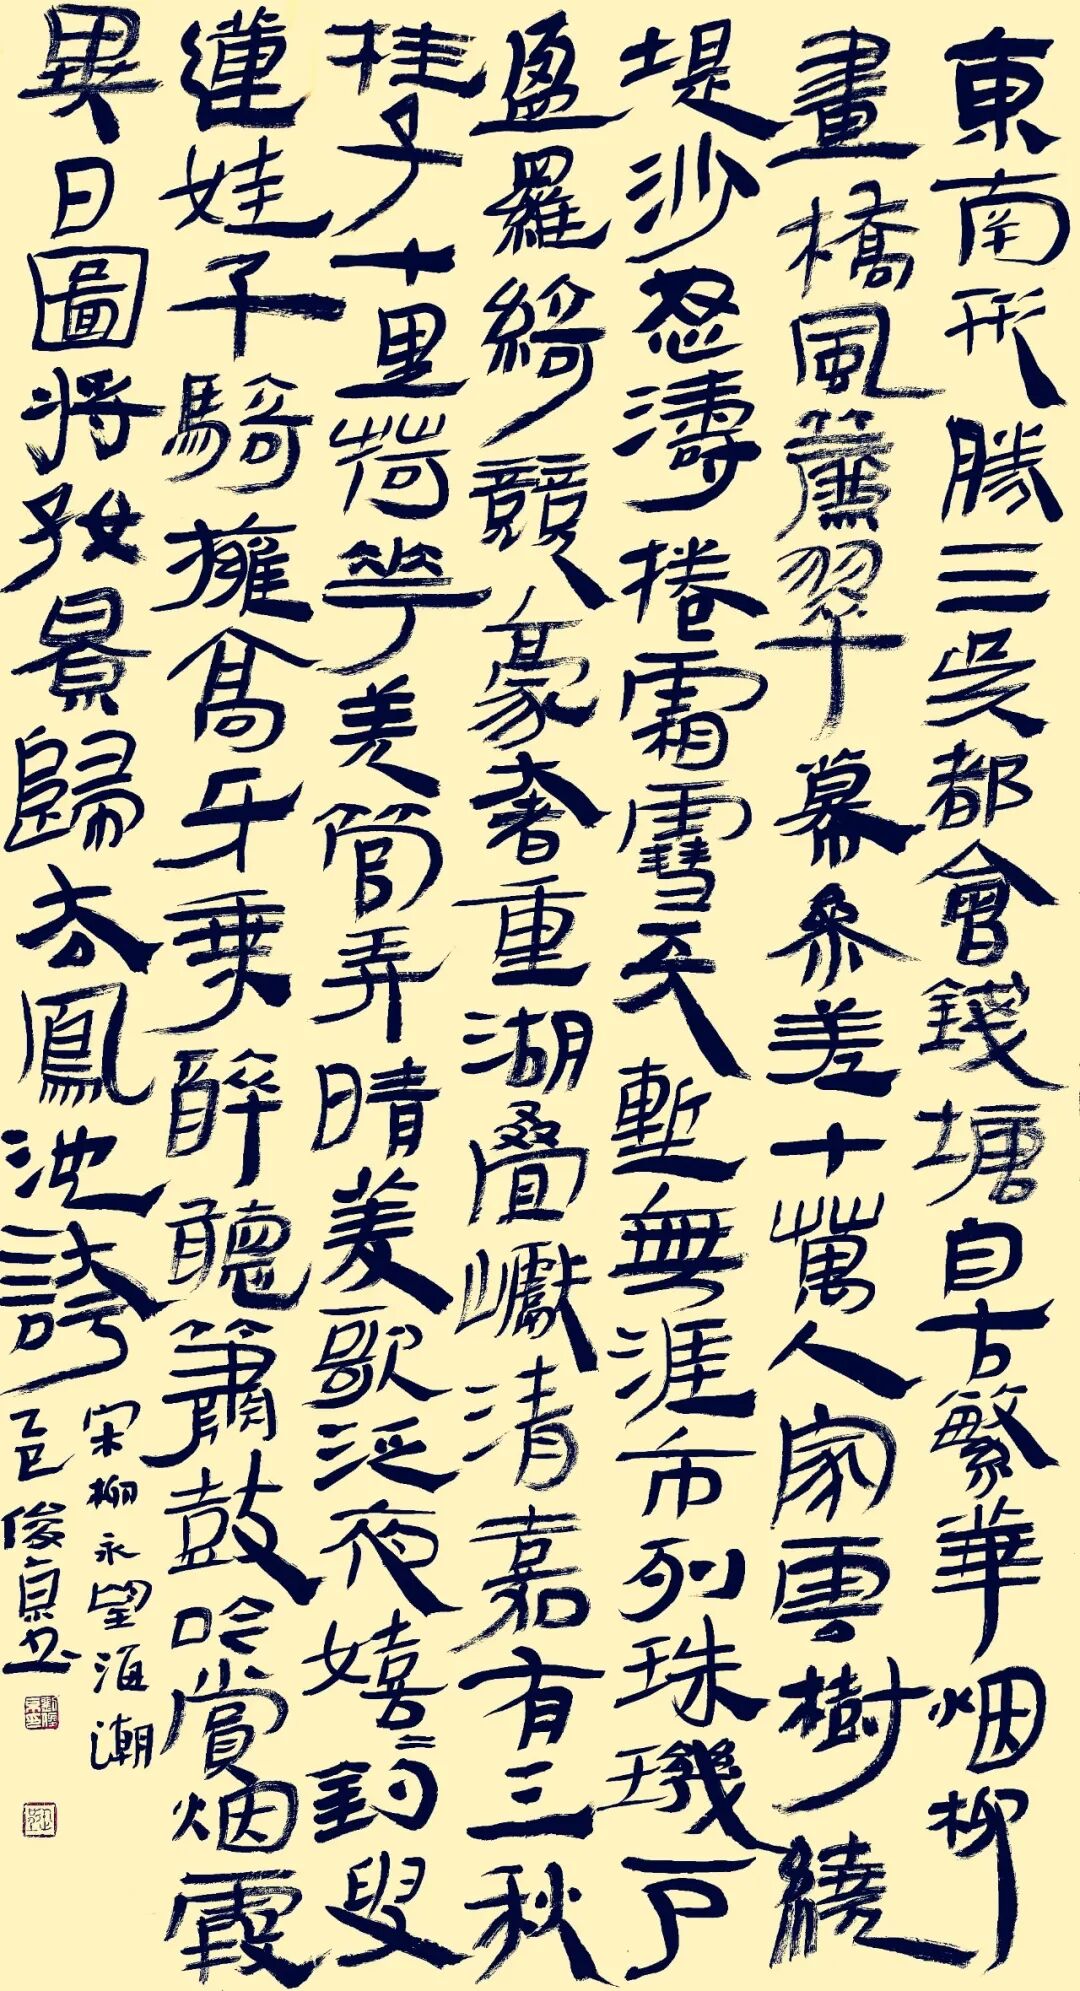 東南形勝三吳都會錢塘自古繁華烟柳
畫橋風簾翠幕參差十萬人家雲樹繞
堤沙怒濤捲霜雪天塹無涯市列珠璣戶
盈羅綺競豪奢重湖疊巘清嘉有三秋
桂子十里荷花羌管弄晴菱歌泛夜嬉〻釣叟
蓮娃千騎擁高牙乘醉聽簫鼓吟賞烟霞
異日圖將好景歸去鳳池誇
宋柳永望海潮
乙巳俊京書